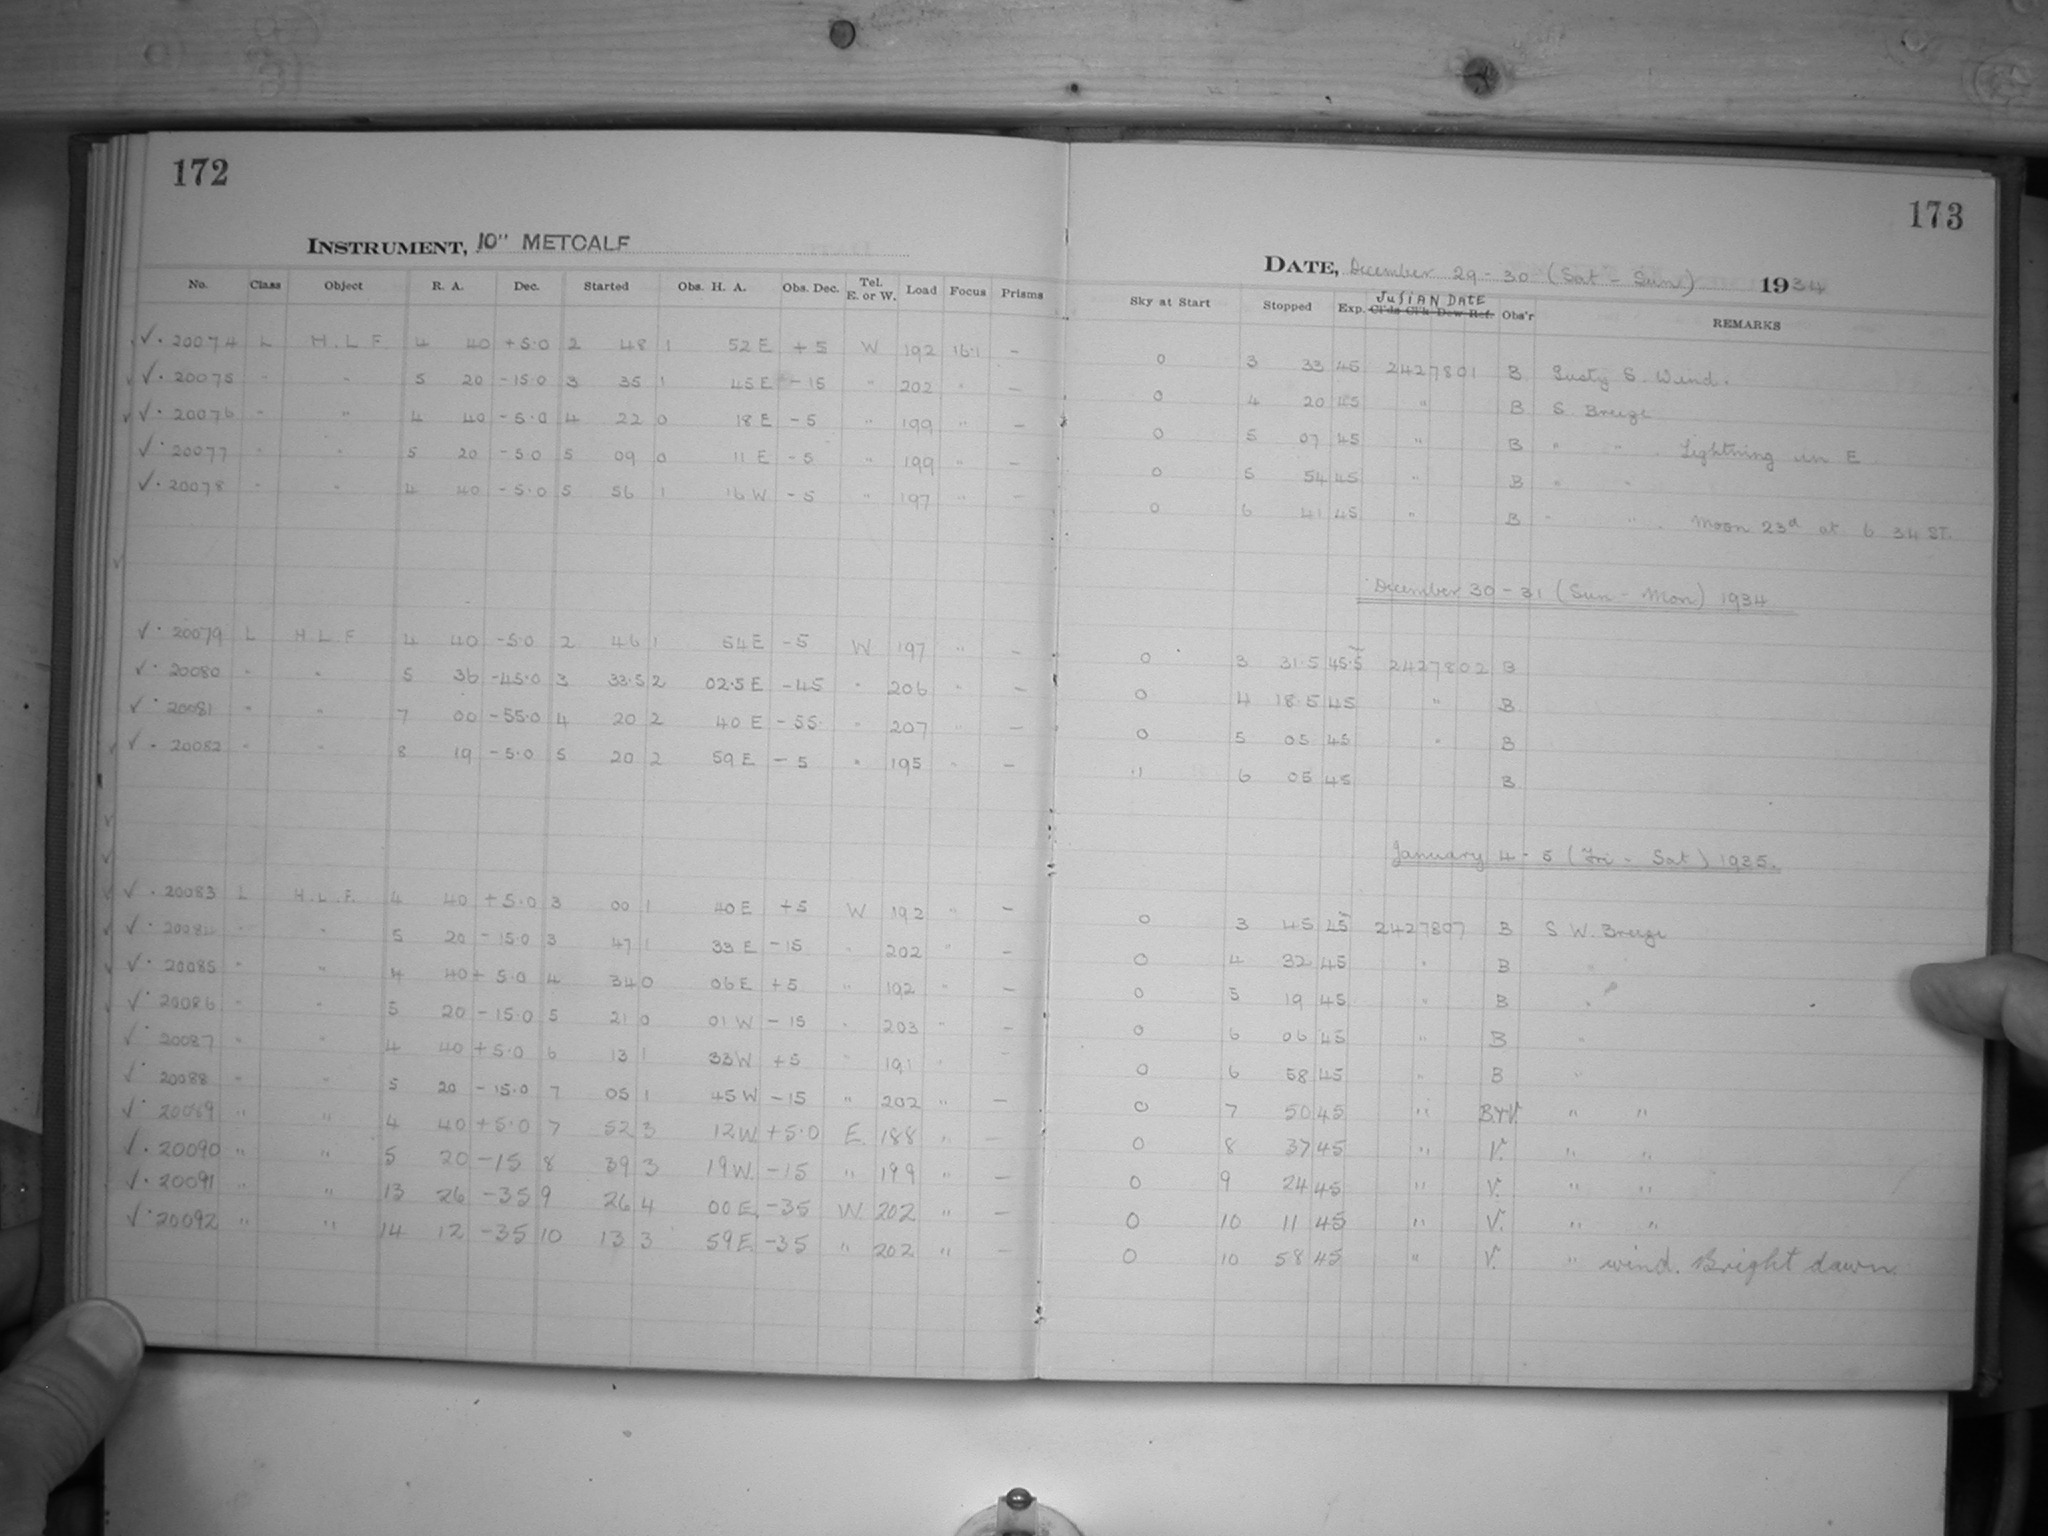 172
INSTRUMENT, 10" METCALF
No. Class Object R. A. Dec. Started Obs. H. A. Obs. Dec. Tel. E. or W. Load Focus Prisms
✓ · 20074 L H.L.F. 4 40 +5.0 2 48 1 52 E +5 W 192 16.1 —
✓ · 20075 " " 5 20 -15.0 3 35 1 45 E -15 " 202 " —
✓ · 20076 " " 4 40 -5.0 4 22 0 18 E -5 " 199 " —
✓ · 20077 " " 5 20 -5.0 5 09 0 11 E -5 " 199 " —
✓ · 20078 " " 4 40 -5.0 5 56 1 16 W -5 " 197 " —
✓ · 20079 L H.L.F. 4 40 -5.0 2 46 1 54 E -5 W 197 " —
✓ · 20080 " " 5 36 -45.0 3 33.5 2 02.5 E -45 " 206 " —
✓ · 20081 " " 7 00 -55.0 4 20 2 40 E -55 " 207 " —
✓ · 20082 " " 8 19 -5.0 5 20 2 59 E -5 " 195 " —
✓ · 20083 L H.L.F. 4 40 +5.0 3 00 1 40 E +5 W 192 " —
✓ · 20084 " " 5 20 -15.0 3 47 1 33 E -15 " 202 " —
✓ · 20085 " " 4 40 +5.0 4 34 0 06 E +5 " 192 " —
✓ · 20086 " " 5 20 -15.0 5 21 0 01 W -15 " 203 " —
✓ · 20087 " " 4 40 +5.0 6 13 1 33 W +5 " 191 " —
✓ · 20088 " " 5 20 -15.0 7 05 1 45 W -15 " 202 " —
✓ · 20089 " " 4 40 +5.0 7 52 3 12 W +5.0 E. 188 " —
✓ · 20090 " " 5 20 -15 8 39 3 19 W. -15 " 199 " —
✓ · 20091 " " 13 26 -35 9 26 4 00 E. -35 W 202 " —
✓ · 20092 " " 14 12 -35 10 13 3 59 E. -35 " 202 " —
173
DATE, December 29-30 (Sat - Sun) 1934
Sky at Start Stopped Exp. JULIAN DATE Cl'ds Cl'k Dew Ref. Obs'r REMARKS
0 3 33 45 2427801 B Gusty S. Wind.
0 4 20 45 " B S. Breeze
0 5 07 45 " B " " . Lightning in E
0 5 54 45 " B " "
0 6 41 45 " B " " . Moon 23d at 6 34 ST.
December 30-31 (Sun - Mon) 1934
0 3 31.5 45.5 2427802 B
0 4 18.5 45 " B
0 5 05 45 " B
.1 6 05 45 B
January 4-5 (Fri - Sat) 1935.
0 3 45 45 2427807 B S W. Breeze
0 4 32 45 " B "
0 5 19 45 " B "
0 6 06 45 " B "
0 6 58 45 " B "
0 7 50 45 " B+V. " "
0 8 37 45 " V. " "
0 9 24 45 " V. " "
0 10 11 45 " V. " "
0 10 58 45 " V. " wind. Bright dawn.